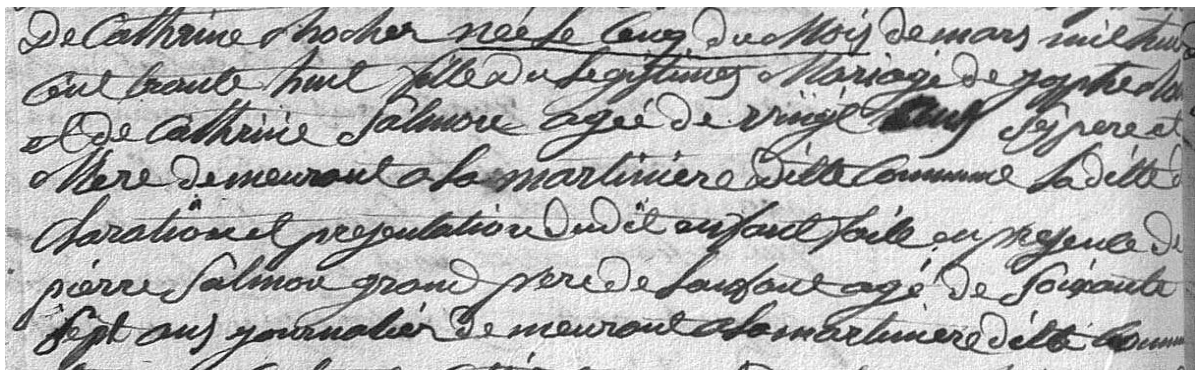 De Cathrine Rocher née Le Cinq du Mois de mars mil huit
Cent trante huit fille du Legistimes Mariage de joséphe
et de Cathrine Salmon agée de vingt ans ses pere et
Mere demeurant a La martiniere ditte Commune La ditte dé
claration et presentation dudit enfant faite en presence de
pierre Salmon grand pere de Lanfant agé de Soixante
Sept ans journalier demeurant a La martiniere ditte Commune